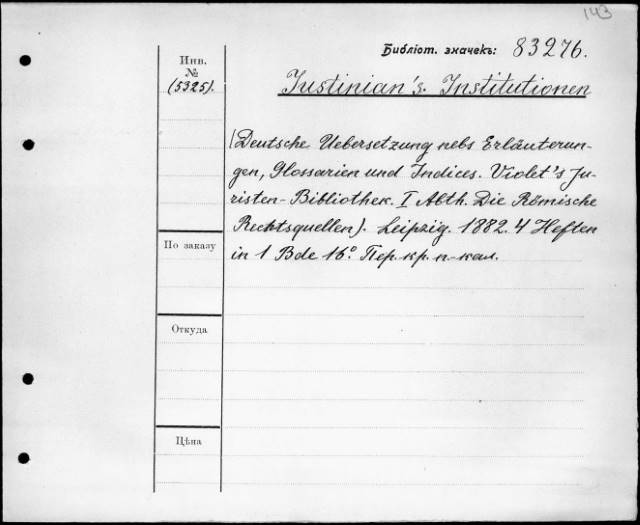 143
Библіот. значекъ: 83276.
Инв.
№
(5325).
Iustinian's Institutionen
(Deutsche Uebersetzung nebs Erläuterun-
gen, Glossarien und Indices. Violet's Ju-
risten-Bibliothek. I Abth. Die Römische
Rechtsquellen). Leipzig. 1882. 4 Heften
in 1 Bde 16° Пер. кр. п-кал.
По заказу
Откуда
Цѣна